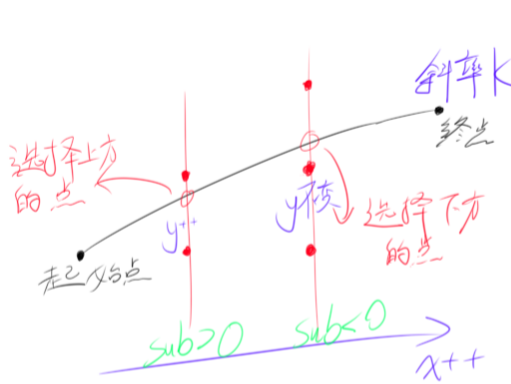 斜率k
终点
选择上方
的点
y++
y不变
选择下方
的点
起始点
sub>0
sub<0
x++